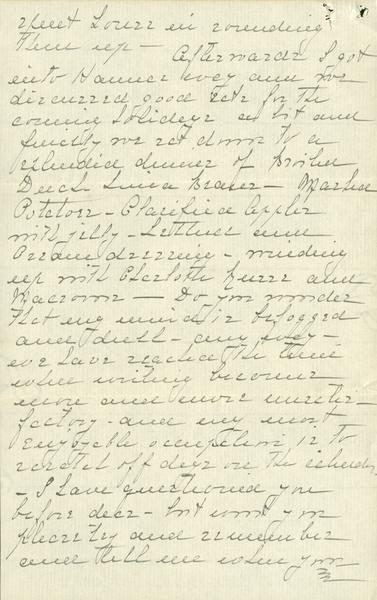 spent hours in rounding
them up — Afterwards I got
into Hanner over and we
discussed good eats for the
coming Holidays a bit and
finally we sat down to a
splendid dinner of Broiled
Duck Lima Beans — Mashed
Potatoes — Clarified apples
with jelly — Lettuce and
Cream dressing — winding
up with Charlotte Russe and
Macaroons — Do you wonder
that my mind is befogged
and dull — any way —
we have reached the time
when writing becomes
more and more unsatis-
factory — and my most
enjoyable occupation is to
scratch off days on the calendar
— I have questioned you
before dear — but wont you
please try and remember
and tell me when you